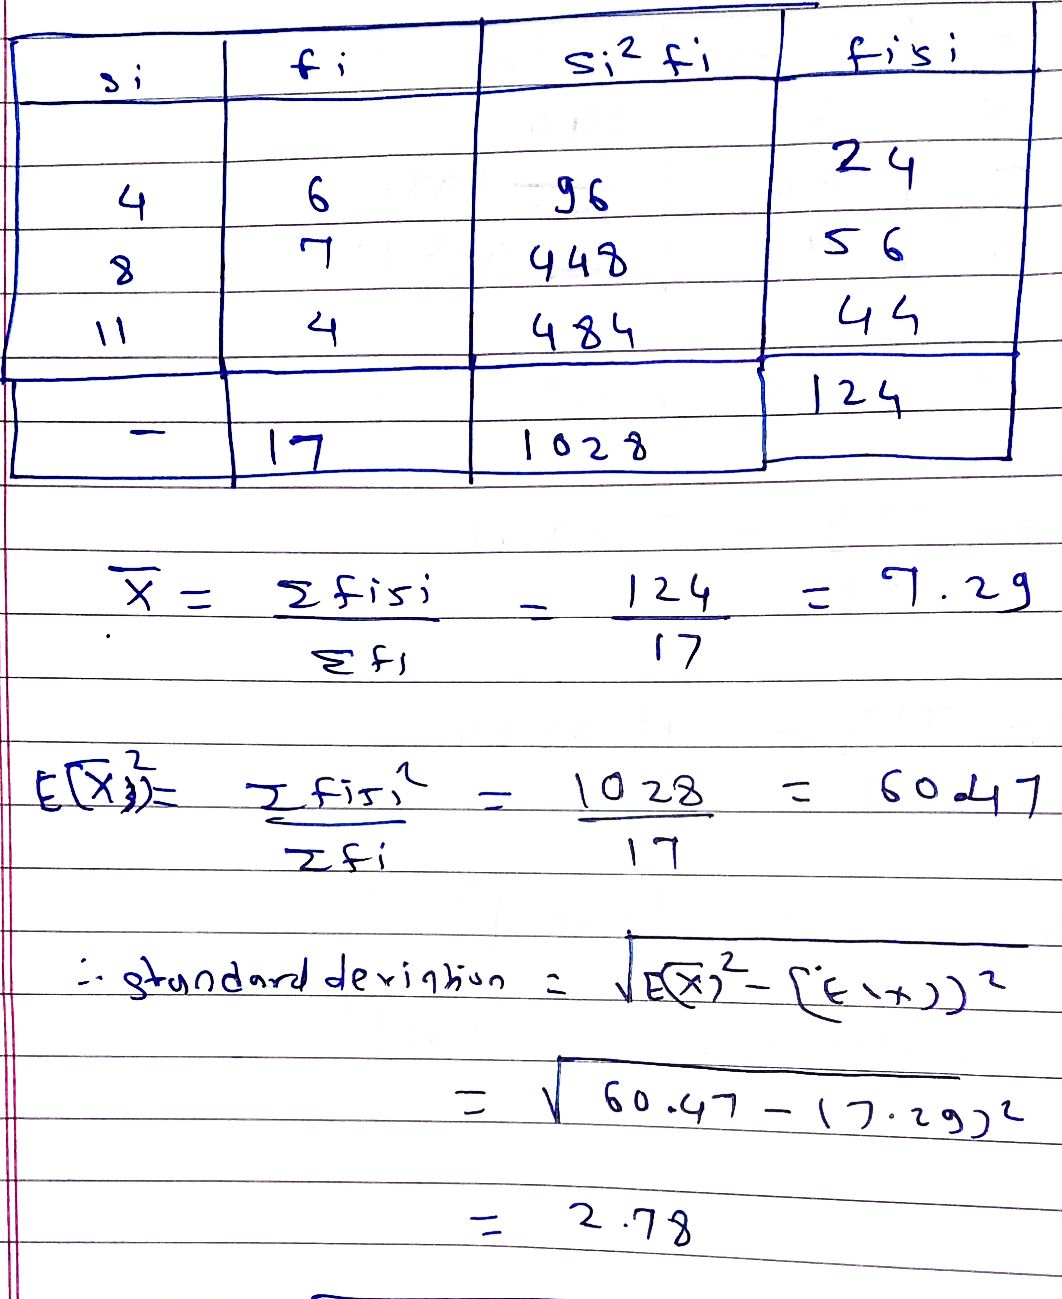 si fi si² fi fisi
4 6 96 24
8 7 448 56
11 4 484 44
- 17 1028 124
X̄ = Σfisi / Σfi = 124 / 17 = 7.29
E(X̄)² = Σfisi² / Σfi = 1028 / 17 = 60.47
∴ standard deviation = √E(X̄)² - (E(x))²
= √60.47 - (7.29)²
= 2.78